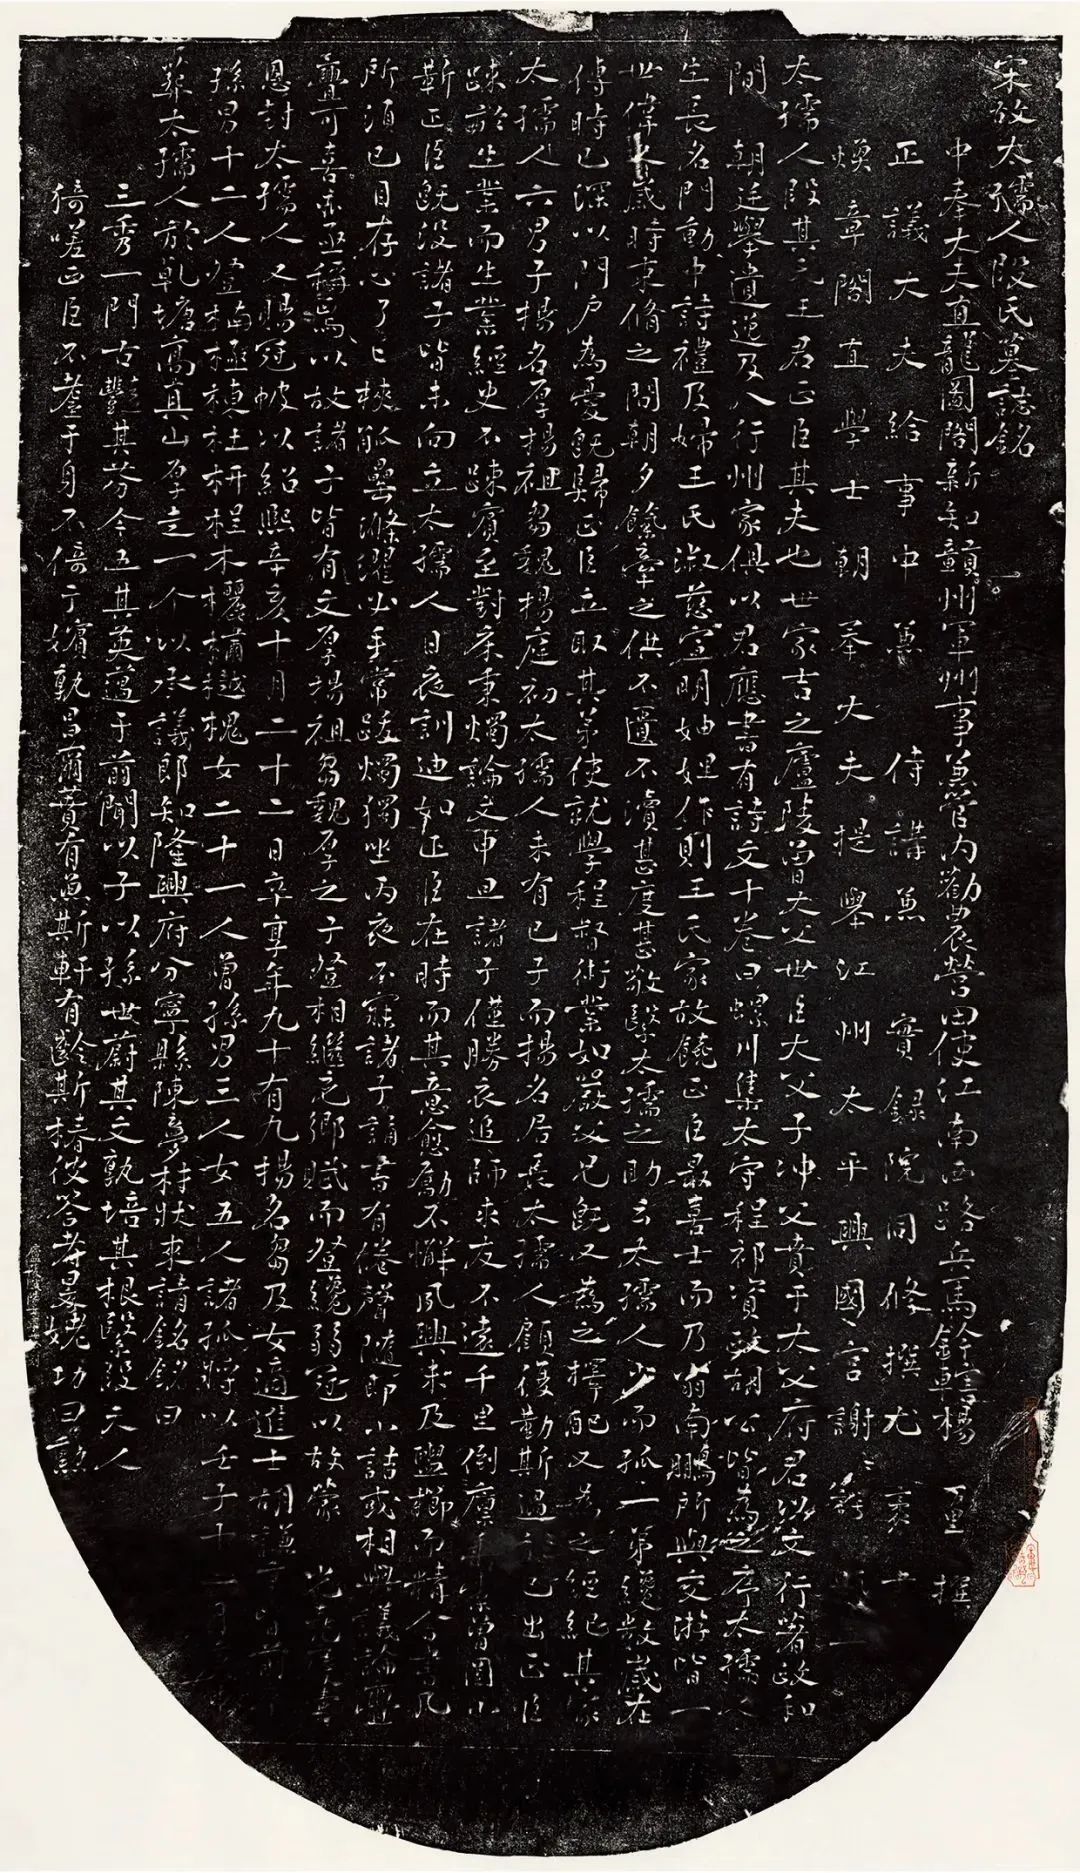 宋故太孺人段氏墓誌銘
中奉大夫直龍圖閣新知贛州軍州事兼管內勸農營田使江南西路兵馬鈐轄楊 萬里 撰
正議大夫給事中兼 侍講兼 實錄院同修撰尤 袤 書
煥章閣直學士朝奉大夫提舉江州太平興國宮謝 諤 題
太孺人段其先王君正臣其夫也世家吉之廬陵曾大父世臣大父子沖父賁于大父府君以文行著政和
間 朝廷舉遺逸及八行州家俱以君應書有詩文十卷曰螺川集太守程祁資政胡公皆為之序太孺人
生長名門動中詩禮及婦王氏淑慈宣明妯娌作則王氏家故饒正臣最喜士而乃翁南鵬所與交游皆一
世偉人歲時束脩之問朝夕餼牽之供不匱不瀆甚度甚敬繄太孺之助云太孺人少而孤一弟纔數歲在
傅時已深以門戶為憂既歸正臣立取其弟使就學程督術業如嚴父兄既又為之擇配又為之經紀其家
太孺人六男子揚名厚揚祖芻魏揚庭初太孺人未有已子而揚名居長太孺人顧復勤斯過於已出正臣
疎於生業而生業經史不疎賓至對床秉燭論文申旦諸子僅勝衣追師求友不遠千里倒廩
靳正臣既沒諸子皆未向立太孺人日夜訓迪如正臣在時而其意愈勵不懈夙興未及盥櫛而精
所須已目存心了匕梜觚罍滌濯必手常跋燭獨坐丙夜不寐諸子誦書有倦聲隨即小詰或相與議論亹
亹可喜亦亟稱焉以故諸子皆有文厚揚祖芻魏厚之子登相繼充鄉賦而登纔弱冠以故蒙
恩封太孺人又賜冠帔以紹熙辛亥十月二十二日卒享年九十有九揚名芻及女適進士胡謙亨
孫男十二人登楠極楨柱枅桯木欏樠樾槐女二十一人曾孫男三人女五人諸孤將以壬子十一月
葬太孺人於軋塘高真山厚走一个以承議郎知隆興府分寧縣陳夢材狀來請銘銘曰
三秀一門古豔其芬今五其英邁于前聞以子以孫世蔚其文孰培其根繄段夫人
猗嗟正臣不耋于身不倍于嬪孰昌爾蕡有燕斯軒有齡斯椿彼荅考是姥功曰勲